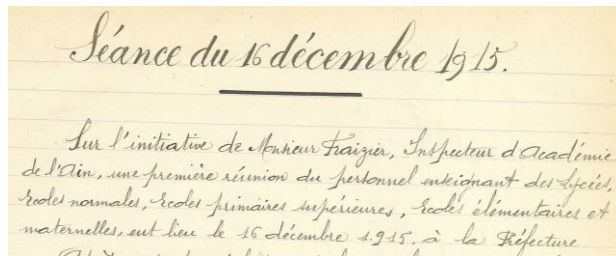 Séance du 16 décembre 1915.
Sur l'initiative de Monsieur Fraizier, Inspecteur d'Académie
de l'Ain, une première réunion du personnel enseignant des Lycées,
Ecoles normales, Ecoles primaires supérieures, Ecoles élémentaires et
maternelles, eut lieu le 16 décembre 1915. à la Préfecture